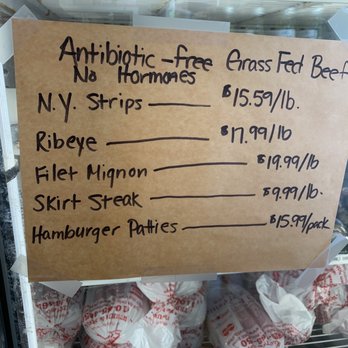 Antibiotic-free Grass Fed Beef
No Hormones
N.Y. Strips — $15.59/lb.
Ribeye — $17.99/lb
Filet Mignon — $19.99/lb
Skirt Steak — $9.99/lb.
Hamburger Patties — $15.99/pack